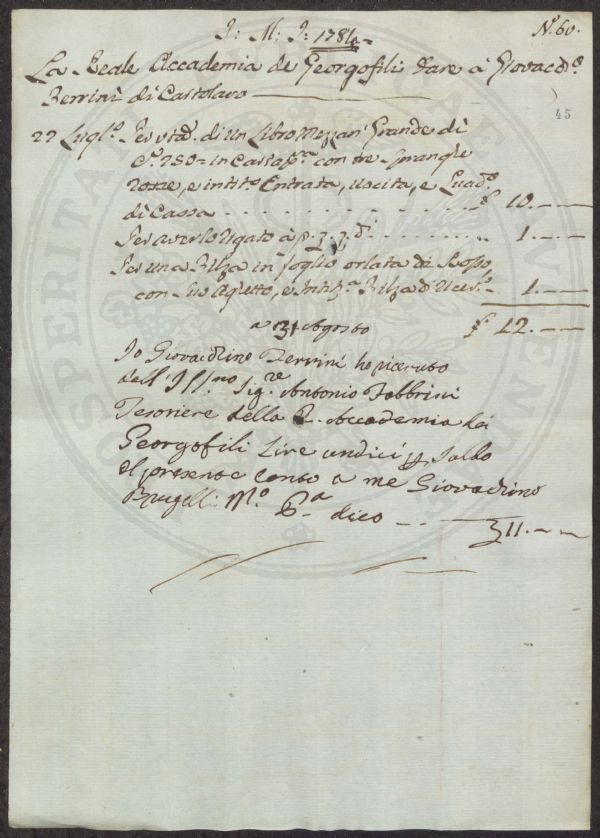 J: M: J: 1784
N.° 60.
La Reale Accademia de Georgofili Dare à Giovacch.°
Ferrini di Cartolaro
45
22 Lugl.° Per vta di un Libro Mezzan Grande di
C.e 280 in Cartap.ra con tre Spranghe
Rosse, e intit.° Entrata, uscita, e Quad.°
di Cassa £ 10.—
Per averlo rigato à 1.—
Per una Filza in foglio orlata di Rosso,
con Suo Aghetto, e Intit.a Filza d'Ricev.e 1.—
a 31 Agosto £ 12.—
Io Giovacchino Ferrini ho ricevuto
dell' Ill.mo Sig.re Antonio Fabbrini
Tesoriere della R. Accademia dei
Georgofili Lire undici p. Saldo
el presente Conto a me Giovachino
M.° dico £ 11.—
PROSPERITATI PUBLICAE AUGENDAE